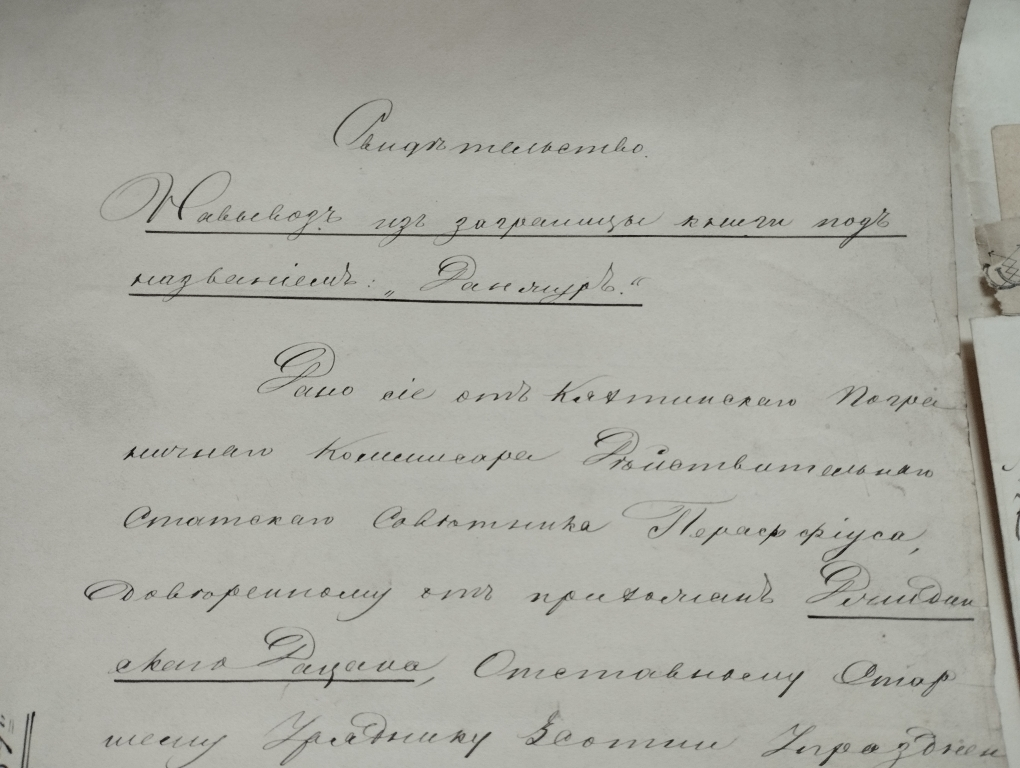 Свидѣтельство.
На вывозъ изъ заграницы книги подъ
названіемъ: „Данжуръ.“
Дано сіе отъ Кяхтинскаго Погра
ничнаго Коммисара Дѣйствительнаго
Статскаго Совѣтника
Довѣренному отъ прихожанъ
скаго Дацана, Отставному Стар
шему Уряднику Сотни Упразднен